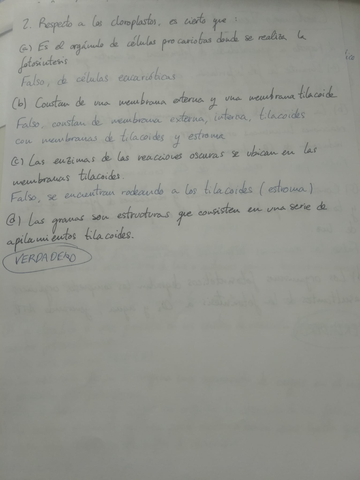 2. Respecto a los cloroplastos, es cierto que:
(a) Es el orgánulo de células procariotas donde se realiza la
fotosíntesis
Falso, de células eucarióticas
(b) Constan de una membrana externa y una membrana tilacoide.
Falso, constan de membrana externa, interna, tilacoides
con membranas de tilacoides y estroma
(c) Las enzimas de las reacciones oscuras se ubican en las
membranas tilacoides.
Falso, se encuentran rodeando a los tilacoides (estroma)
(d) Las granas son estructuras que consisten en una serie de
apilamientos tilacoides.
VERDADERO